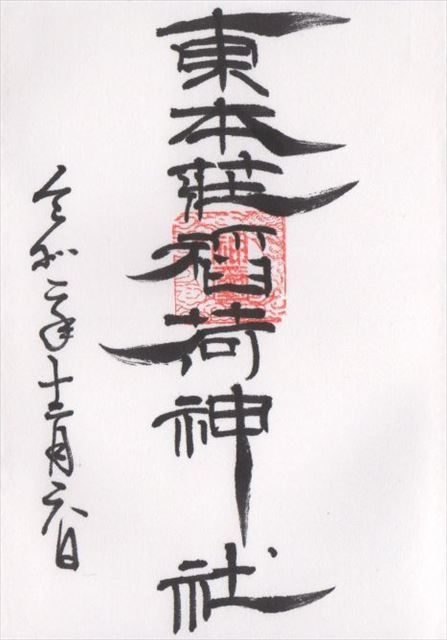 東本莊稲荷神社
令和二年十二月六日